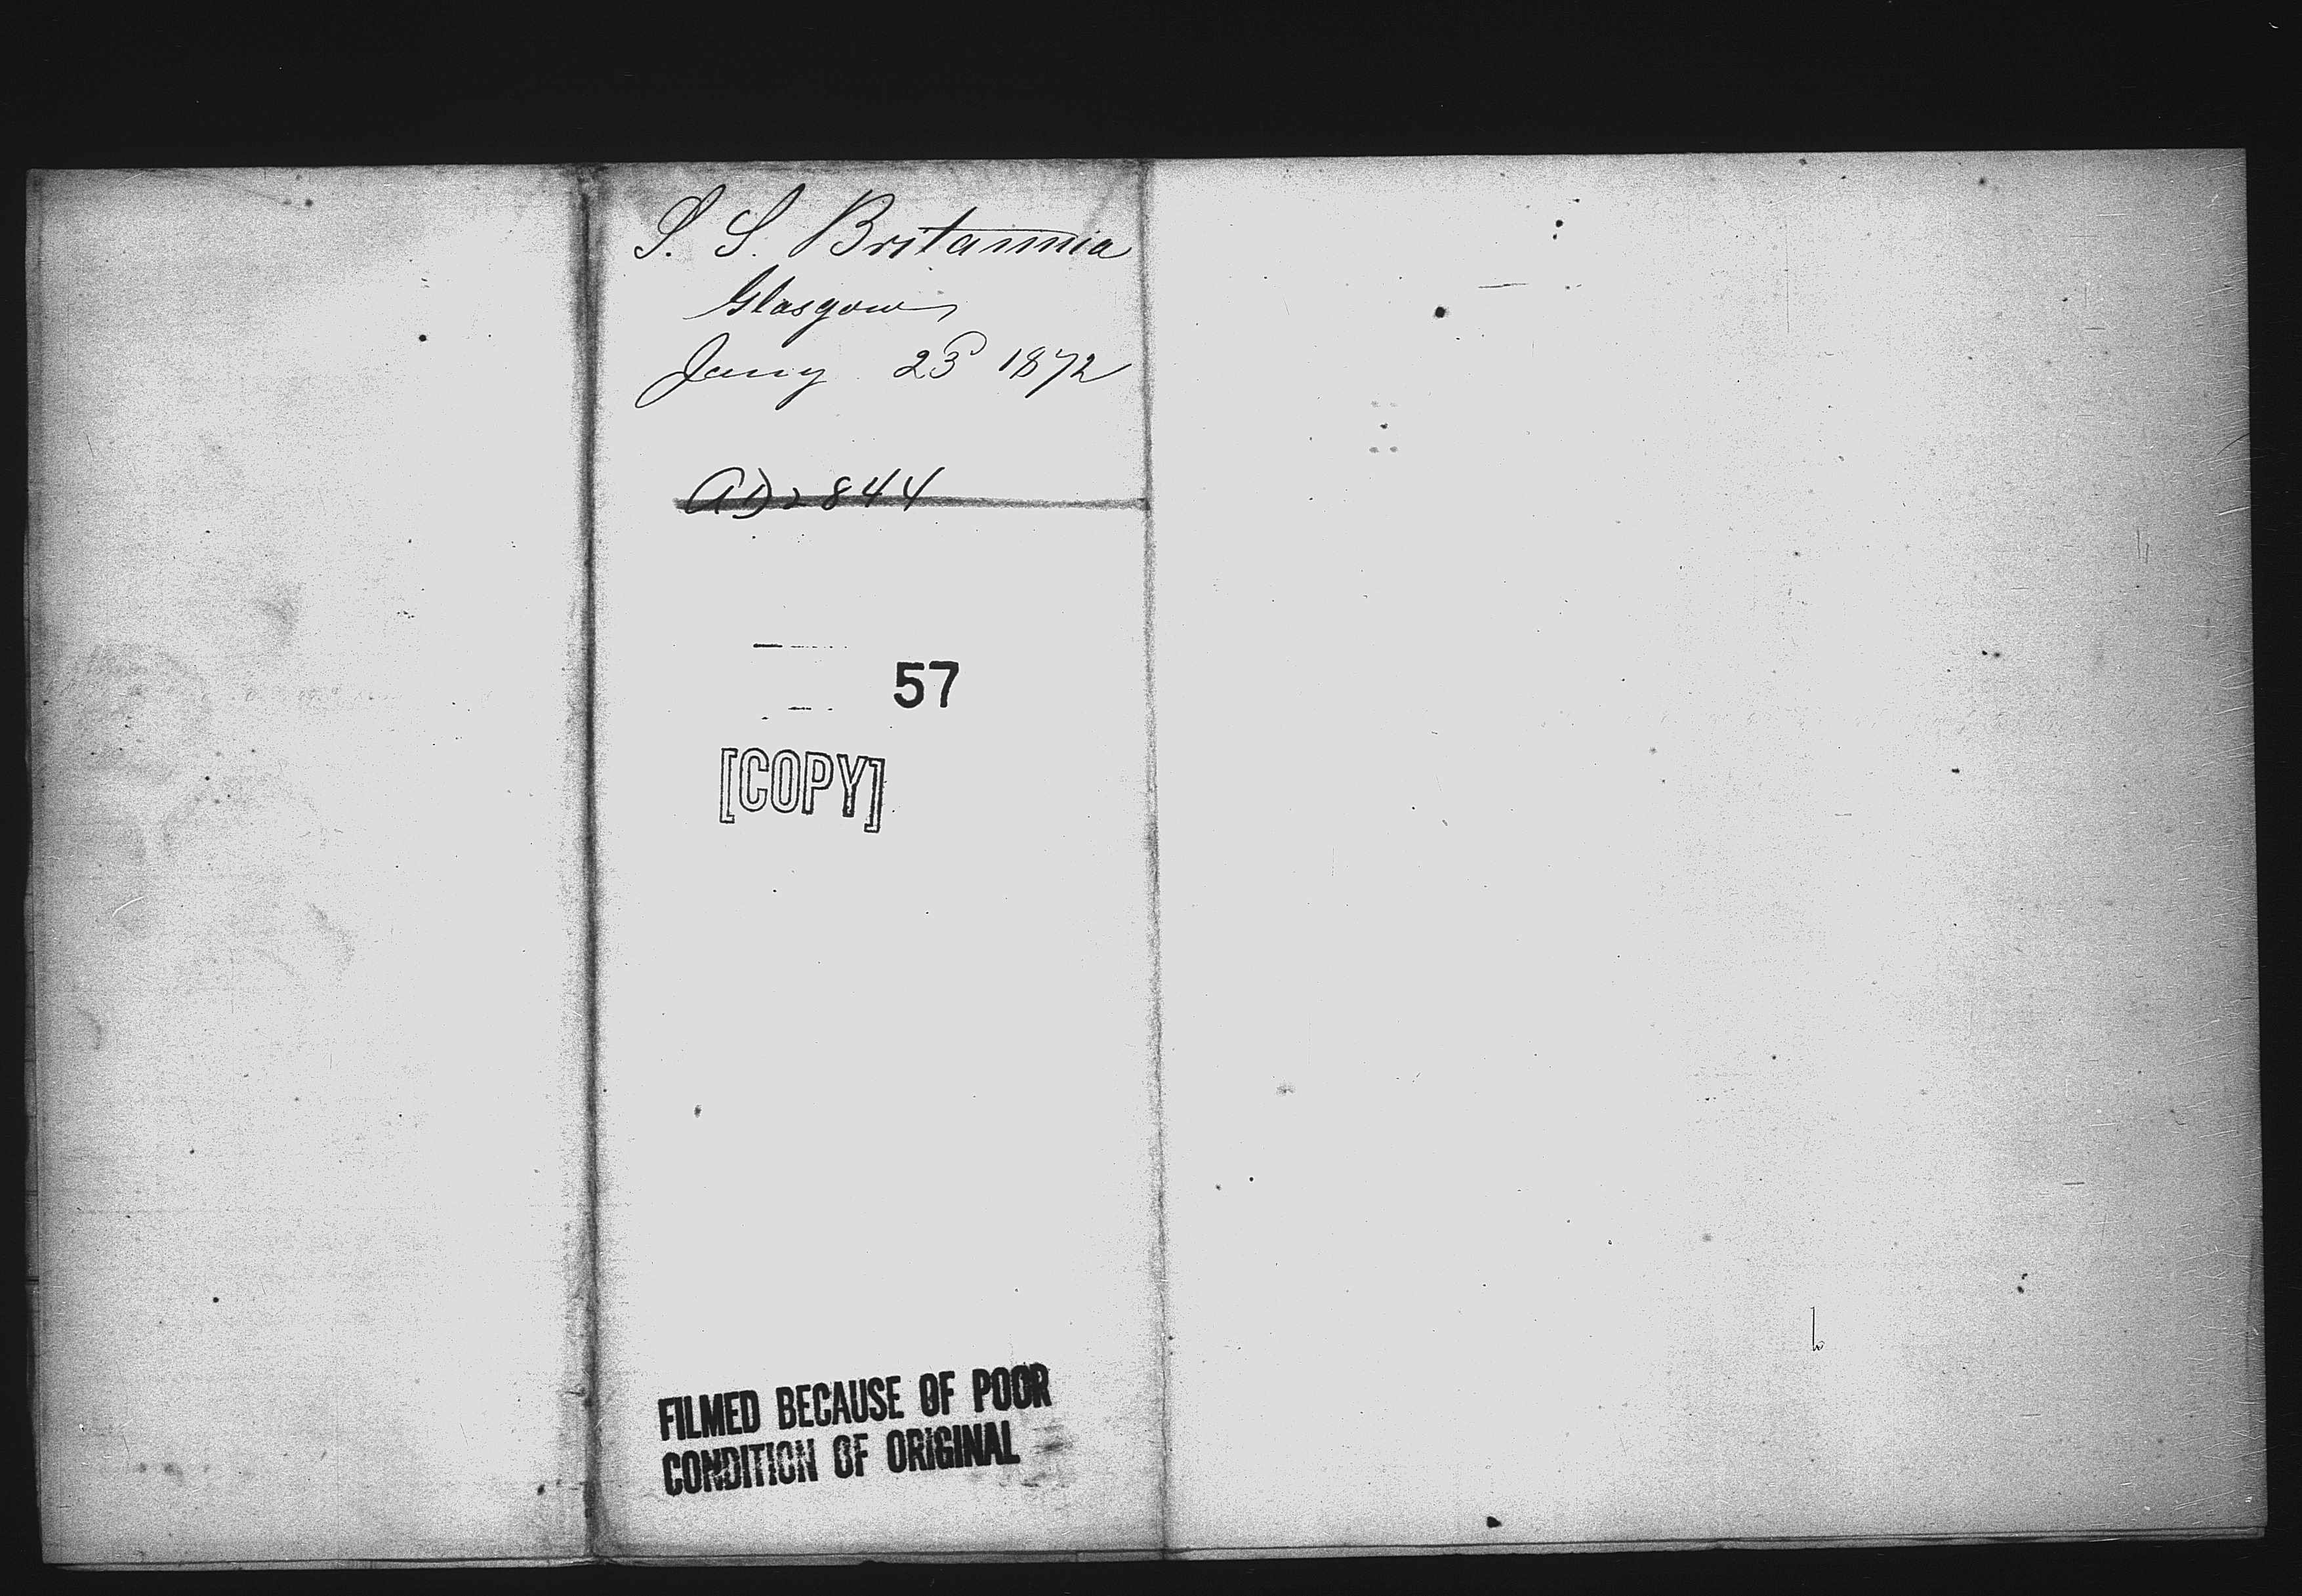 S. S. Britannia
Glasgow
Jany 23d 1872
57
[COPY]
FILMED BECAUSE OF POOR
CONDITION OF ORIGINAL